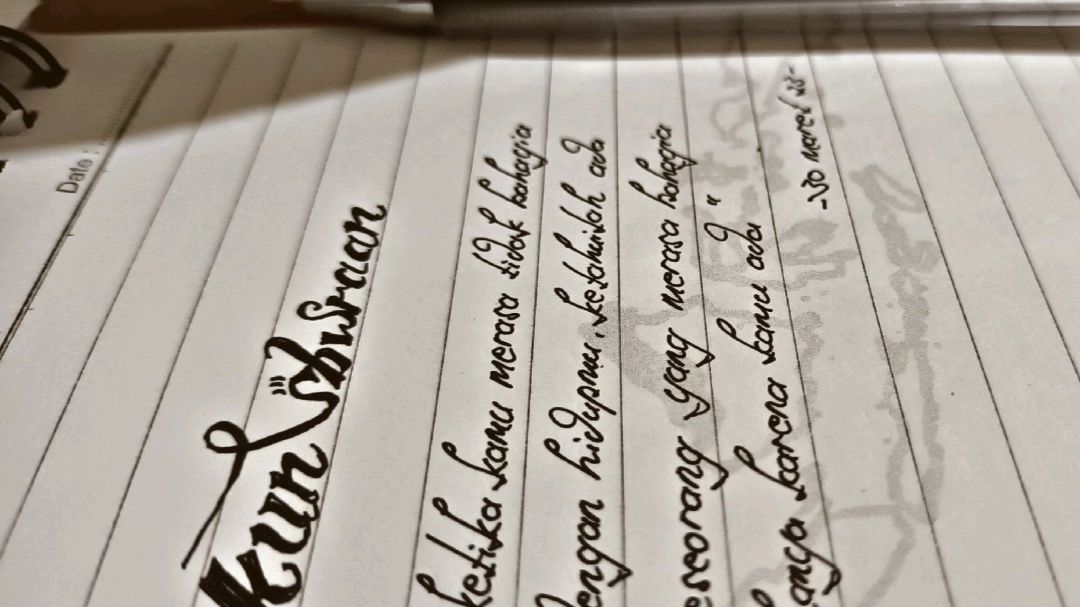 Date :
Kun
ketika kamu merasa tidak bahagia
dengan hidupmu, ketahuilah ada
seseorang yang merasa bahagia
hanya karena kamu ada "
-30 Maret 25-